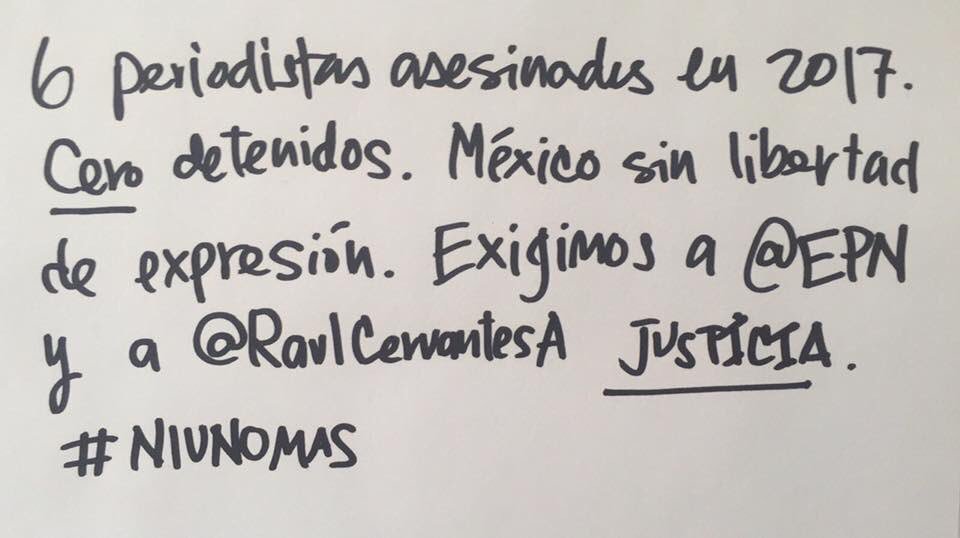 6 periodistas asesinados en 2017.
Cero detenidos. México sin libertad
de expresión. Exigimos a @EPN
y a @RaulCervantesA JUSTICIA.
#NIUNOMAS